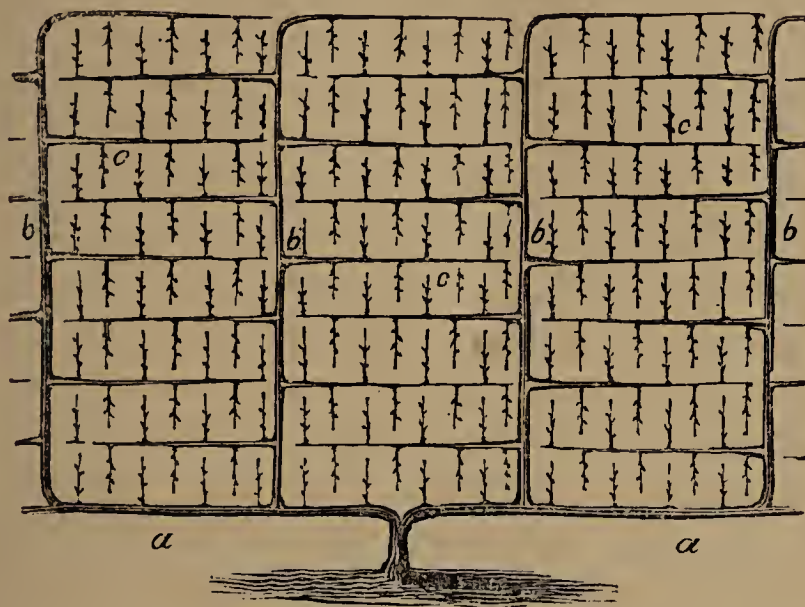 c
c
b
b
b
b
c
a
a